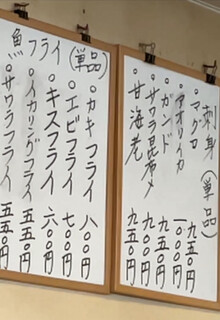 刺身(単品)
・マグロ 九五〇円
・アオリイカ 一〇〇〇円
・ガンド 九五〇円
・サワラ昆布〆 九〇〇円
・甘海老 九五〇円
魚フライ(単品)
・カキフライ 八〇〇円
・エビフライ 七〇〇円
・キスフライ 六〇〇円
・イカリングフライ 五五〇円
・サワラフライ 五五〇円